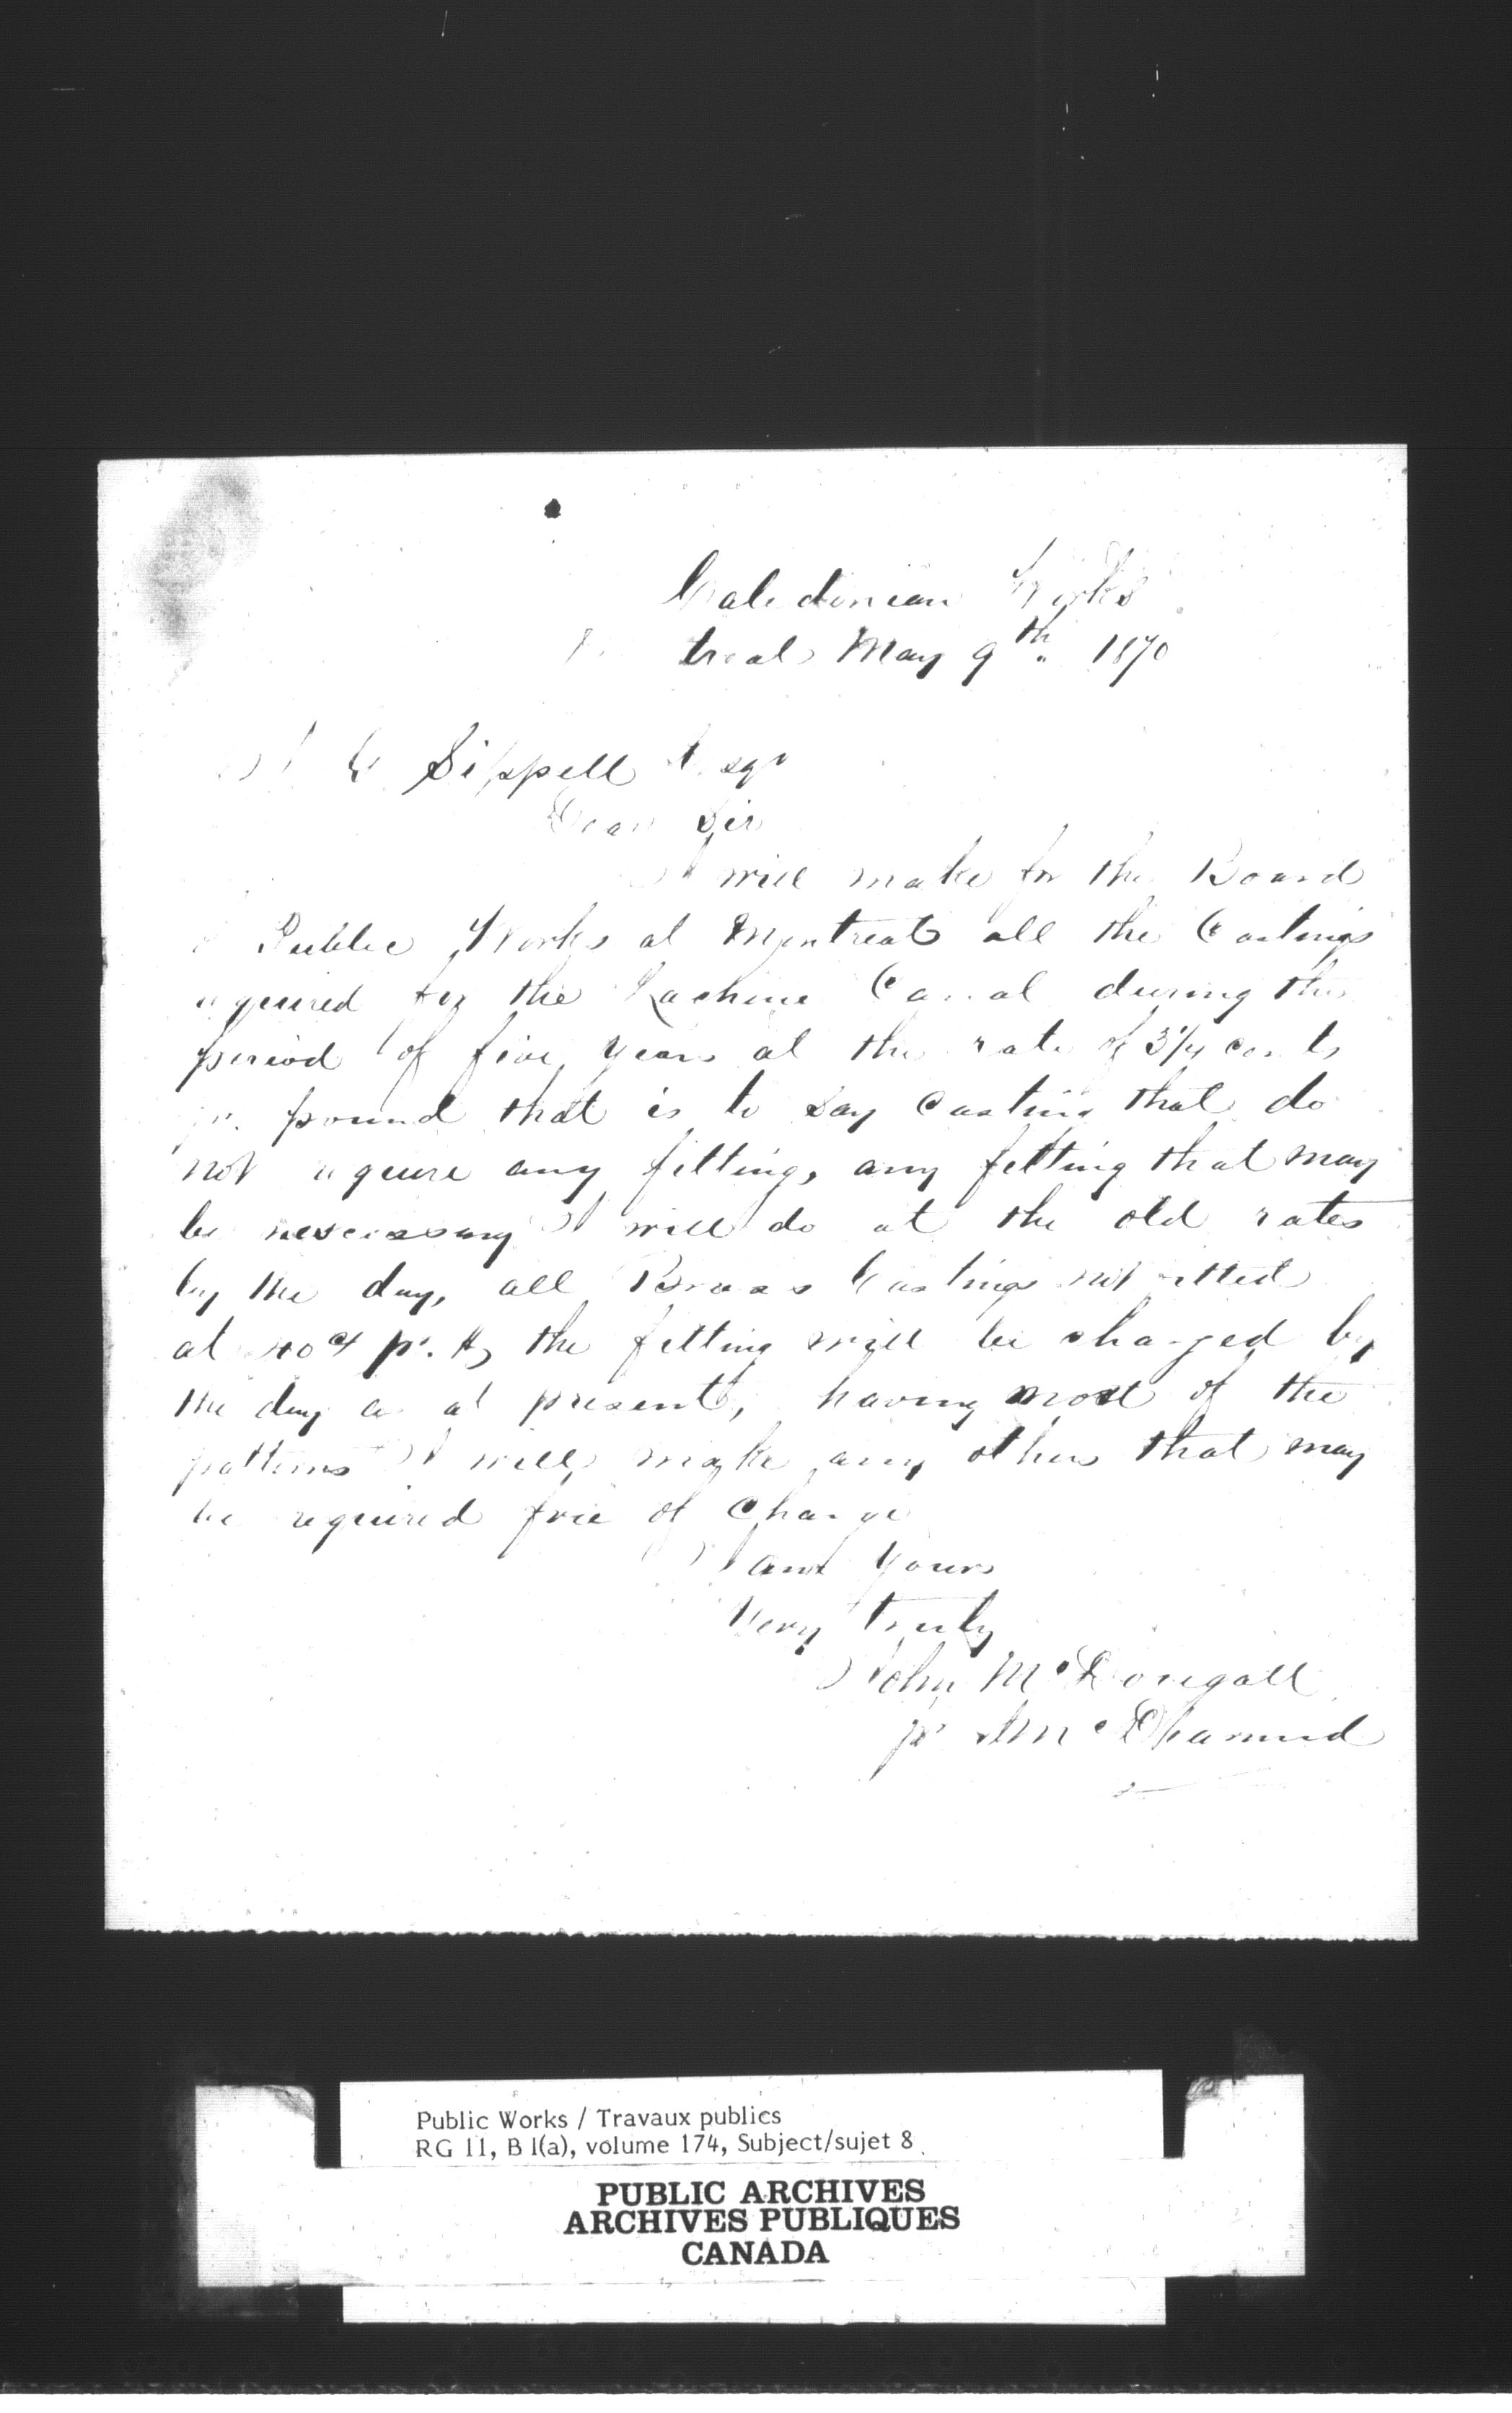 Caledonian Works
Montreal May 9th. 1870
J G Sippell Esqr
Dear Sir
I will make for the Board
of Public Works at Montreal all the Castings
required for the Lachine Canal during the
period of five years at the rate of 3 1/4 cents
pr. pound that is to say Casting that do
not require any fitting, any fitting that may
be nescessary I will do at the old rates
by the day, all Brass Castings not fitted
at 40 cts pr. lb, the fitting will be charged by
the day as at present, having most of the
patterns I will make any others that may
be required free of Charge
I am Yours
Very truly
John McDougall
pr
Public Works / Travaux publics
RG 11, B 1(a), volume 174, Subject/sujet 8
PUBLIC ARCHIVES
ARCHIVES PUBLIQUES
CANADA